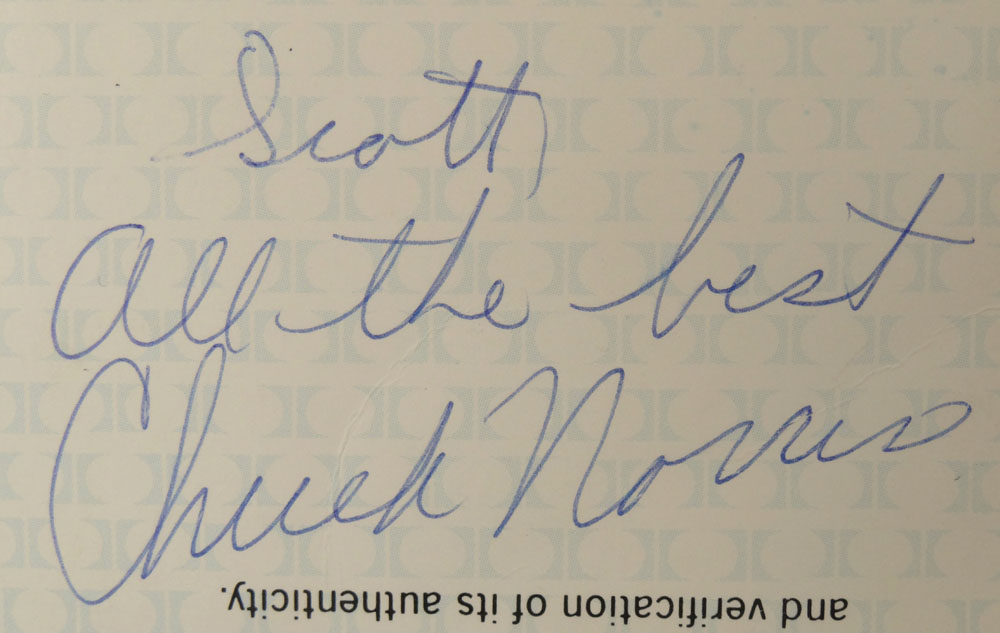 Scott,
All the best
Chuck Norris
and verification of its authenticity.